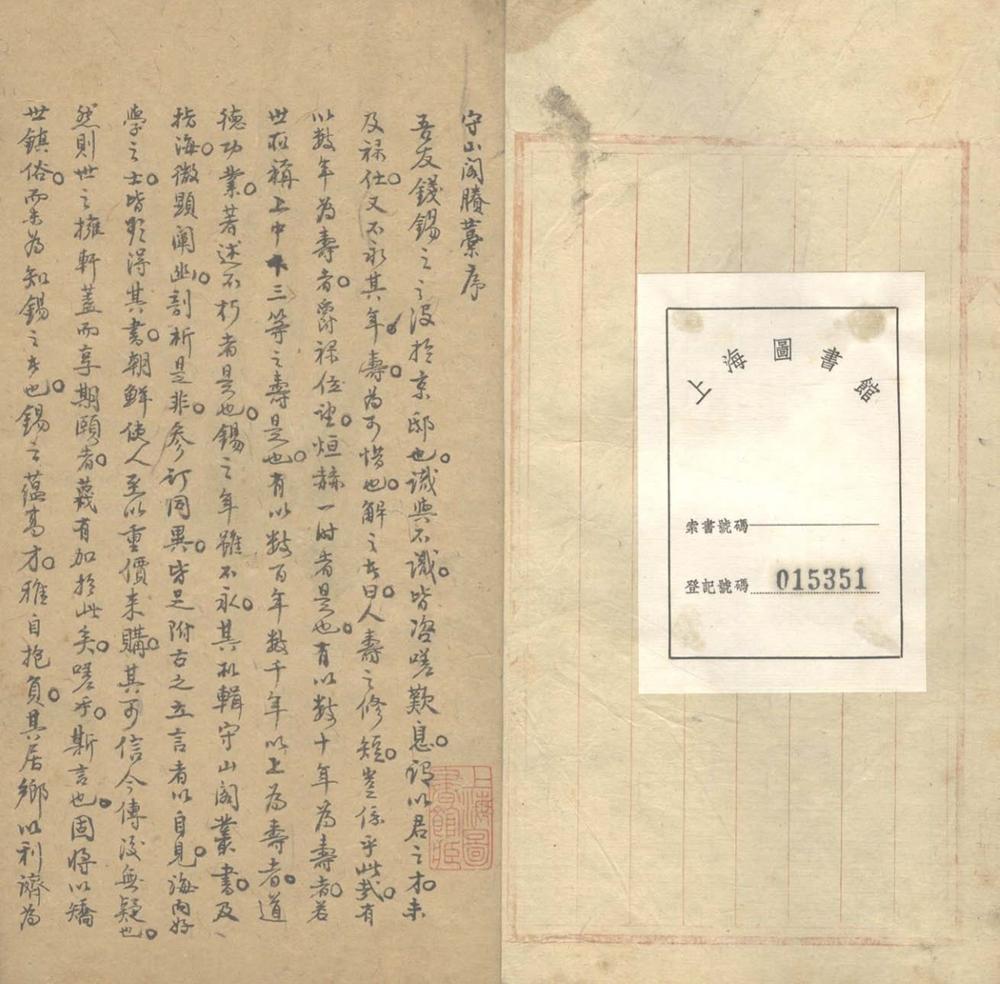 上海圖書館
索書號碼
登記號碼 015351
守山閣賸藁序
吾友錢錫之之沒於京邸也。識與不識。皆咨嗟歎息。謂以君之才未
及祿仕。又不永其年壽。為可惜也。解之者曰。人壽之修短。豈係乎此哉。有
以數年為壽者。爵祿位望。烜赫一時者是也。有以數十年為壽者。若
世所稱上中下三等之壽是也。有以數百年數千年以上為壽者。道
德功業。著述不朽者是也。錫之年雖不永。其所輯守山閣叢書。及
指海。微顯闡幽。剖析是非。參訂同異。皆足附古之立言者以自見。海內好
學之士。皆願得其書。朝鮮使人至以重價來購。其可信今傳後無疑也。
然則世之擁軒蓋而享期頤者。蔑有加於此矣。嗟乎。斯言也。固將以矯
世鎮俗。而未為知錫之者也。錫之蘊高才。雅自抱負。其居鄉以利濟為
上海圖
書館藏